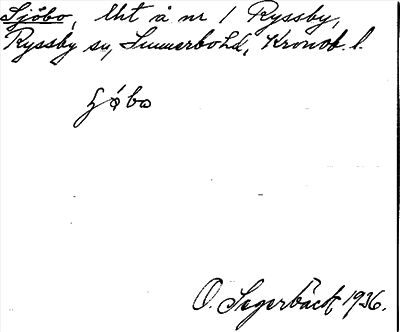 Sjöbo, lht å nr 1 Ryssby,
Ryssby sn, Sunnerbo hd, Kronob. l.
ʃøbo
O. Segerbäck 1936.